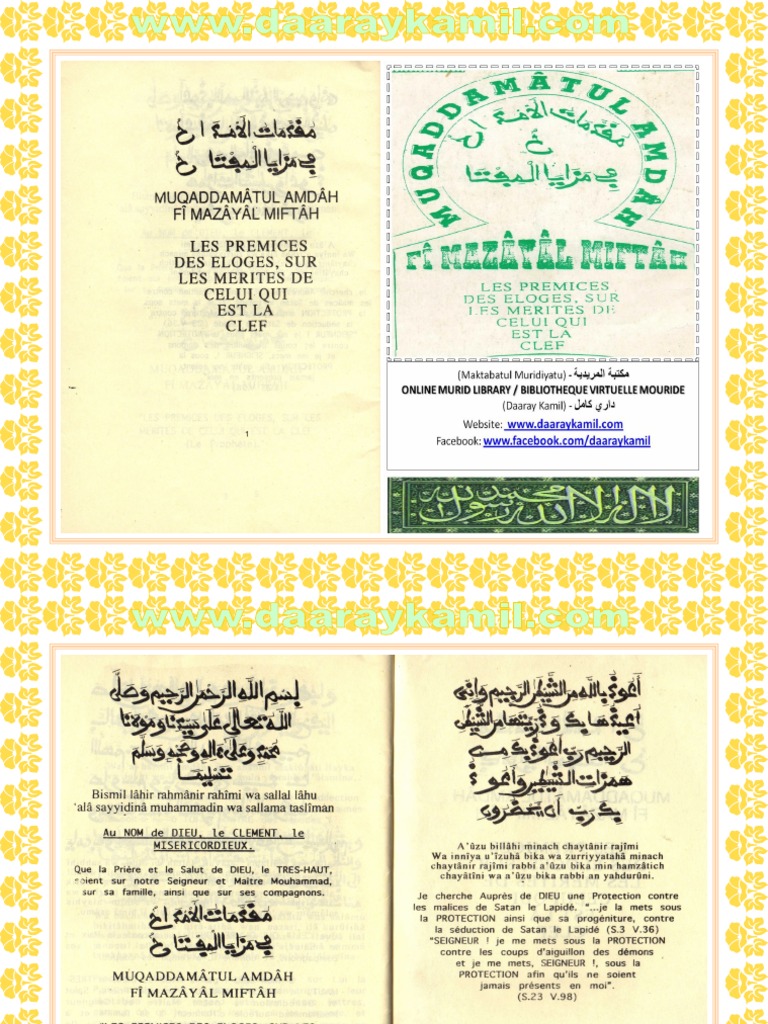 www.daaraykamil.com
مقدمات الامداح
في مزايا المفتاح
MUQADDAMÂTUL AMDÂH
FÎ MAZÂYÂL MIFTÂH
LES PREMICES
DES ELOGES, SUR
LES MERITES DE
CELUI QUI
EST LA
CLEF
1
MUQADDAMÂTUL AMDÂH
مقدمات الامداح
في مزايا المفتاح
FÎ MAZÂYÂL MIFTÂH
LES PREMICES
DES ELOGES, SUR
LES MERITES DE
CELUI QUI
EST LA
CLEF
(Maktabatul Muridiyatu) - مكتبة المريدية
ONLINE MURID LIBRARY / BIBLIOTHEQUE VIRTUELLE MOURIDE
(Daaray Kamil) - داري كامل
Website: www.daaraykamil.com
Facebook: www.facebook.com/daaraykamil
لا اله الا الله محمد رسول الله
www.daaraykamil.com
بسم الله الرحمن الرحيم وصلى
الله تعالى على سيدنا ومولانا
محمد وعلى ءاله وصحبه وسلم
تسليما
Bismil lâhir rahmânir rahîmi wa sallal lâhu
'alâ sayyidinâ muhammadin wa sallama taslîman
Au NOM de DIEU, le CLEMENT, le
MISERICORDIEUX.
Que la Prière et le Salut de DIEU, le TRES-HAUT,
soient sur notre Seigneur et Maitre Mouhammad,
sur sa famille, ainsi que sur ses compagnons.
مقدمات الامداح
في مزايا المفتاح
MUQADDAMÂTUL AMDÂH
FÎ MAZÂYÂL MIFTÂH
أعوذ بالله من الشيطن الرجيم وإني
أعيذها بك وذريتها من الشيطن
الرجيم رب أعوذ بك من
همزات الشيطين وأعوذ
بك رب أن يحضرون
A'ûzu billâhi minach chaytânir rajîmi
Wa innîya u'îzuhâ bika wa zurriyyatahâ minach
chaytânir rajîmi rabbi a'ûzu bika min hamzâtich
chayâtîni wa a'ûzu bika rabbi an yahdurûni.
Je cherche Auprès de DIEU une Protection contre
les malices de Satan le Lapidé, "...je la mets sous
la PROTECTION ainsi que sa progéniture, contre
la séduction de Satan le Lapidé (S.3 V.36)
"SEIGNEUR ! je me mets sous la PROTECTION
contre les coups d'aiguillon des démons
et je me mets, SEIGNEUR !, sous la
PROTECTION afin qu'ils ne soient
jamais présents en moi".
(S.23 V.98)